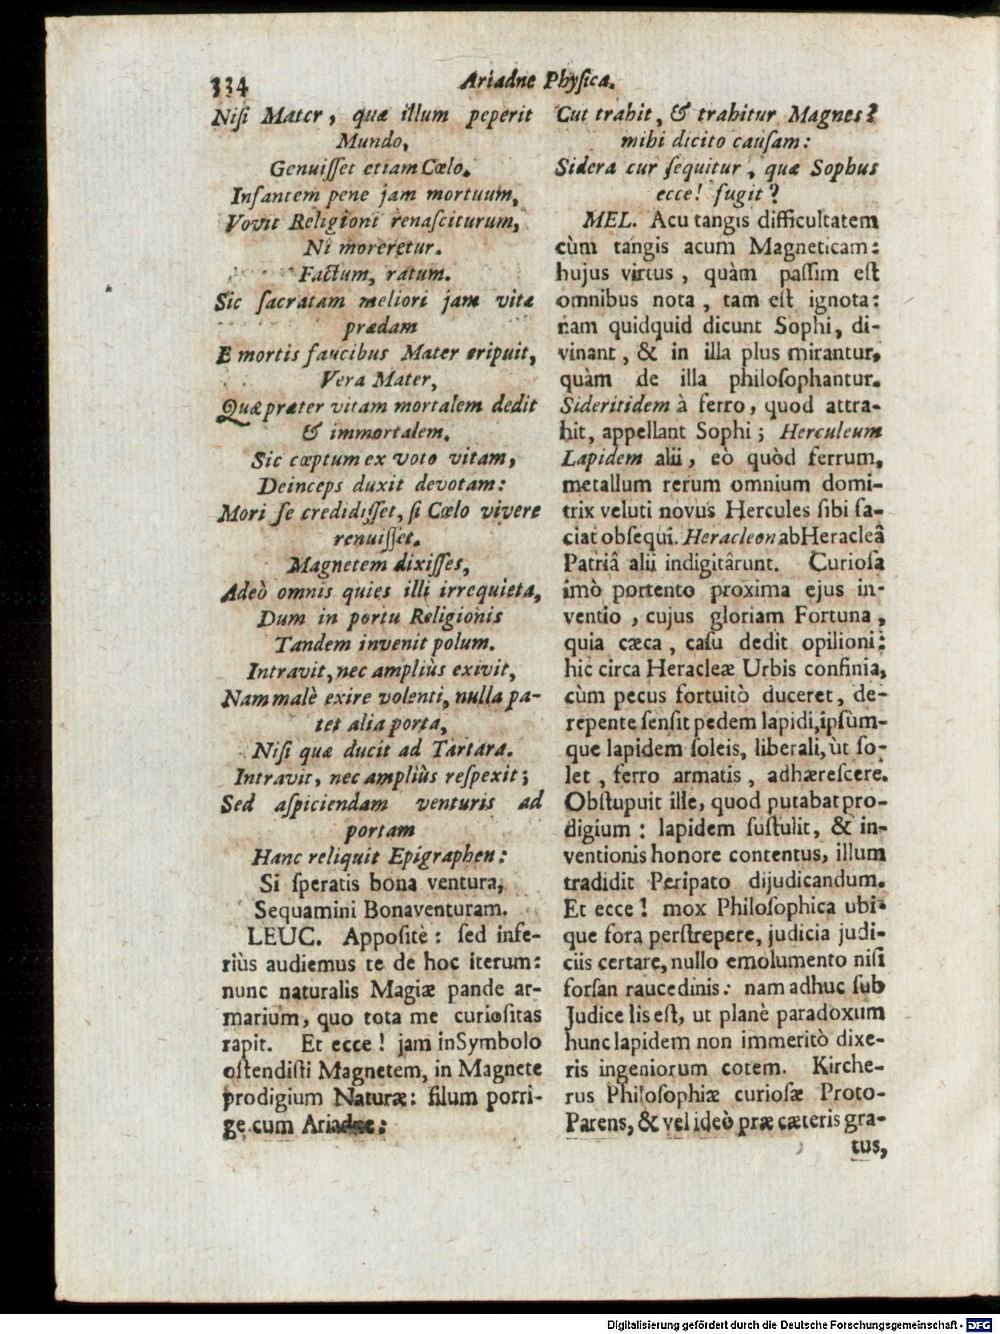 334
Ariadne Physica.
Nisi Mater, quæ illum peperit
Mundo,
Genuisset etiam Cœlo.
Infantem pene jam mortuum,
Vovit Religioni renasciturum,
Ni moreretur.
Factum, ratum.
Sic sacratam meliori jam vitæ
prædam
E mortis faucibus Mater eripuit,
Vera Mater,
Quæ præter vitam mortalem dedit
& immortalem.
Sic cœptum ex voto vitam,
Deinceps duxit devotam:
Mori se credidisset, si Cœlo vivere
renuisset.
Magnetem dixisses,
Adeò omnis quies illi irrequieta,
Dum in portu Religionis
Tandem invenit polum.
Intravit, nec ampliùs exivit,
Nam malè exire volenti, nulla pa-
tet alia porta,
Nisi quæ ducit ad Tartara.
Intravit, nec ampliùs respexit;
Sed aspiciendam venturis ad
portam
Hanc reliquit Epigraphen:
Si speratis bona ventura,
Sequamini Bonaventuram.
LEUC. Appositè: sed infe-
riùs audiemus te de hoc iterum:
nunc naturalis Magiæ pande ar-
marium, quo tota me curiositas
rapit. Et ecce! jam in Symbolo
ostendisti Magnetem, in Magnete
prodigium Naturæ: filum porri-
ge cum Ariadne:
Cut trahit, & trahitur Magnes?
mihi dicito causam:
Sidera cur sequitur, quæ Sophus
ecce! fugit?
MEL. Acu tangis difficultatem
cùm tangis acum Magneticam:
hujus virtus, quàm passim est
omnibus nota, tam est ignota:
nam quidquid dicunt Sophi, di-
vinant, & in illa plus mirantur,
quàm de illa philosophantur.
Sideritidem à ferro, quod attra-
hit, appellant Sophi; Herculeum
Lapidem alii, eò quòd ferrum,
metallum rerum omnium domi-
trix veluti novus Hercules sibi fa-
ciat obsequi. Heracleon ab Heracleâ
Patriâ alii indigitârunt. Curiosa
imò portento proxima ejus in-
ventio, cujus gloriam Fortuna,
quia cæca, casu dedit opilioni:
hic circa Heracleæ Urbis confinia,
cùm pecus fortuitò duceret, de-
repente sensit pedem lapidi, ipsúm-
que lapidem soleis, liberali, ùt so-
let, ferro armatis, adhærescere.
Obstupuit ille, quod putabat pro-
digium: lapidem sustulit, & in-
ventionis honore contentus, illum
tradidit Peripato dijudicandum.
Et ecce! mox Philosophica ubi-
que fora perstrepere, judicia judi-
ciis certare, nullo emolumento nisi
forsan raucedinis: nam adhuc sub
Judice lis est, ut planè paradoxum
hunc lapidem non immeritò dixe-
ris ingeniorum cotem. Kirche-
rus Philosophiæ curiosæ Proto-
Parens, & vel ideò præ cæteris gra-
tus,
Digitalisierung gefördert durch die Deutsche Forschungsgemeinschaft - DFG